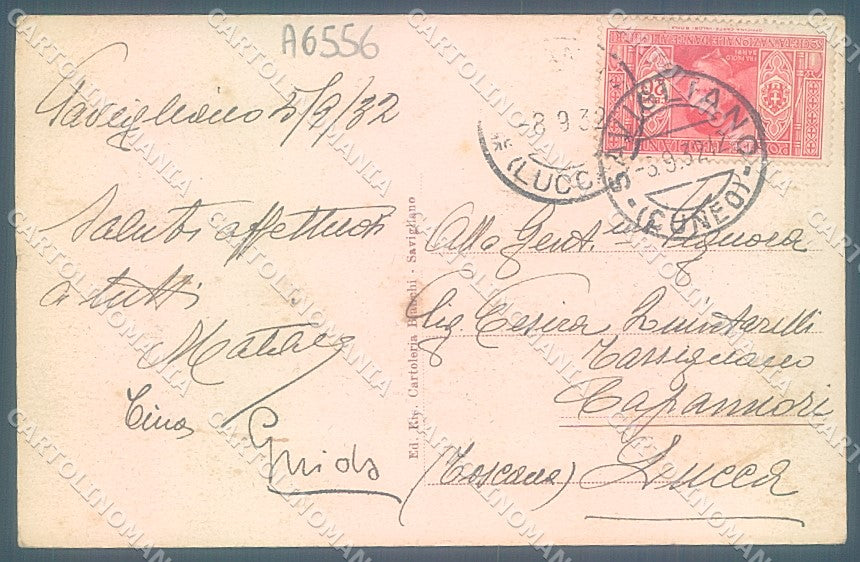 A6556
Savigliano 5/9/32
Saluti affettuosi
a tutti
Cina
Guido
Ed. Riv. Cartoleria Bianchi - Savigliano
Alla Gent. Signora
Sig. Cesira Lunatarelli
Tassignano
Capannori
(Toscana) Lucca
8 9 32
(LUCCA)
SAVIGLIANO
-8.9.32.12
(CUNEO)
CARTOLINOMANIA